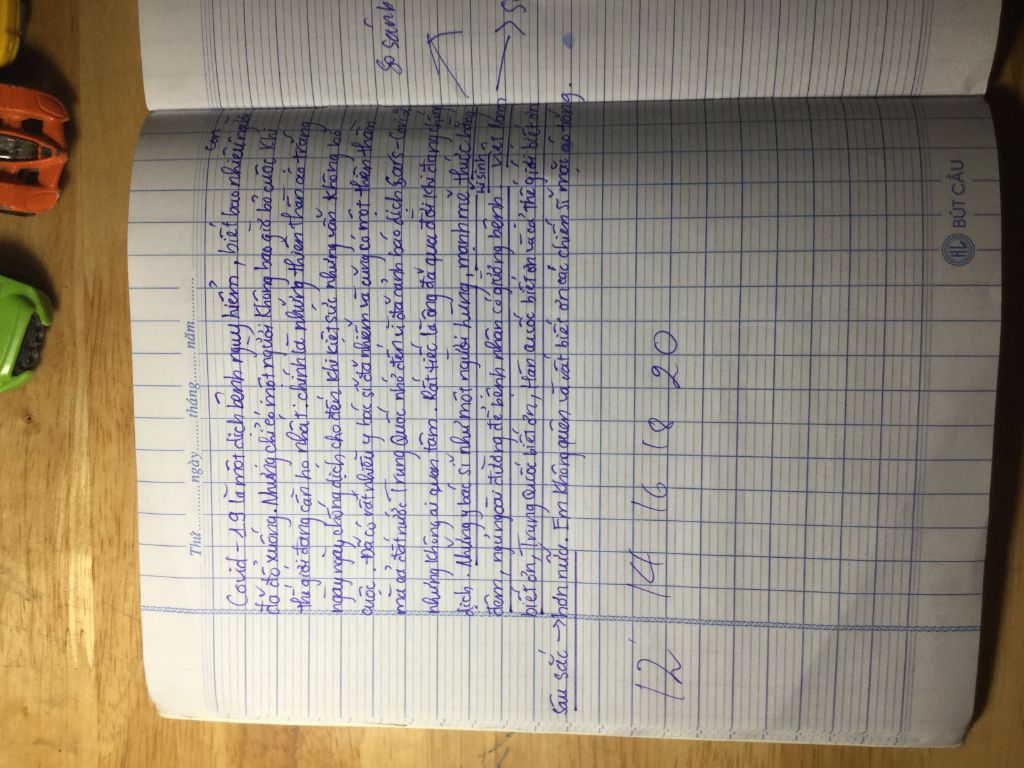 Thứ.........ngày.........tháng.........năm............
Covid-19 là một dịch bệnh nguy hiểm, biết bao nhiêu người con
đã đổ xuống. Nhưng chỉ có một người không bao giờ bỏ cuộc khi
thế giới đang cần họ nhất: chính là những thiên thần áo trắng
ngày này, phòng dịch cho đến khi kiệt sức nhưng vẫn không bỏ
cuộc. Đã có rất nhiều y bác sĩ đã nhiễm và cũng có một thiên thần
mà cả đất nước Trung Quốc nhớ đến vì đã cảnh báo dịch Sars-Cov 2
nhưng không ai quan tâm. Rất tiếc là ông đã qua đời khi đang chống
dịch. Những y bác sĩ như một người hùng, mạnh mẽ thức trắng
đêm, ngủ ngoài đường để bệnh nhân có giường bệnh. Việt Nam
hi sinh
biết ơn, Trung Quốc biết ơn, Hàn Quốc biết ơn và cả thế giới biết ơn
sâu sắc → hơn nữa. Em không quên và rất biết ơn các chiến sĩ mặc áo trắng.
so sánh
12 14 16 18 20
HL BÚT CÂU